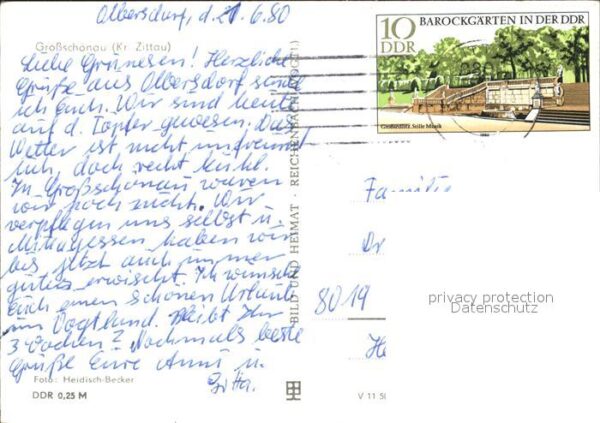 Olbersdorf, d. 21.6.80
Großschönau (Kr. Zittau)
Liebe Grünesen! Herzliche
Grüße aus Olbersdorf sende
ich Euch. Wir sind heute
auf d. Töpfer gewesen. Das
Wetter ist nicht unfreund-
lich, doch recht kühl.
In Großschönau waren
wir noch nicht. Wir
verpflegen uns selbst u.
Mittagessen haben wir
bis jetzt auch immer
gutes erwischt. Ich wünsche
Euch einen schönen Urlaub
im Vogtland. Bleibt Ihr
3 Wochen? Nochmals beste
Grüße Eure Anni u.
Gitta.
Foto: Heidisch-Becker
DDR 0,25 M
BILD UND HEIMAT REICHENBACH (VOGTL)
V 11 50
10
DDR
BAROCKGÄRTEN IN DER DDR
Großsedlitz, Stille Musik
Familie
Dr
8019
He
privacy protection
Datenschutz